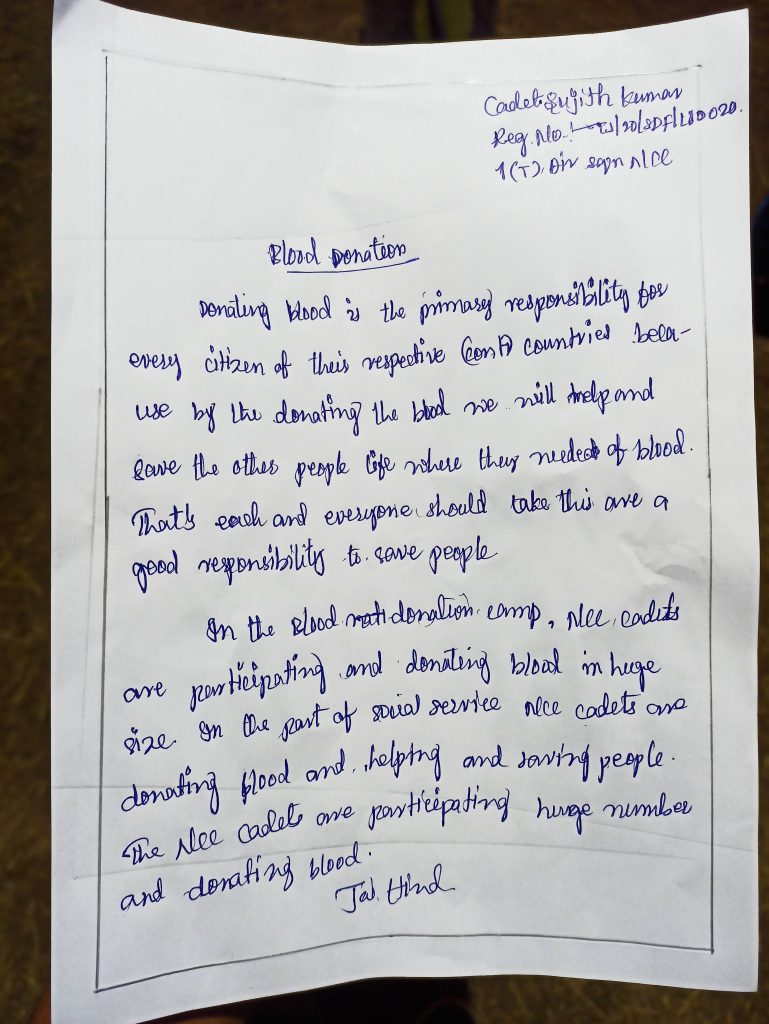 Cadet Sujith Kumar
Reg. No.:-
1 (T). Air sqpn NCC
Blood Donation
Donating blood is the primary responsibility for
every citizen of their respective countries beca-
use by the donating the blood we will help and
save the other people life where they needed of blood.
That's each and everyone should take this are a
good responsibility to save people
In the Blood donation camp, Ncc, cadets
are participating and donating blood in huge
size. In the part of social service Ncc cadets are
donating blood and, helping and saving people.
The Ncc cadets are participating huge number
and donating blood.
Jai Hind